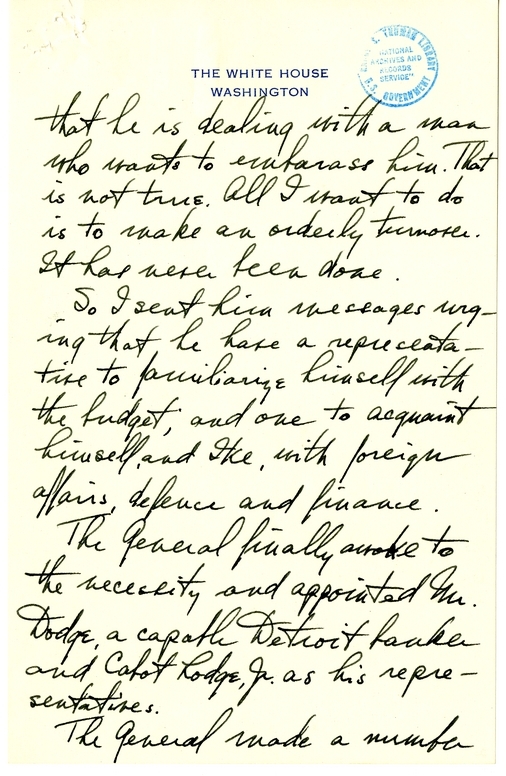 THE WHITE HOUSE
WASHINGTON
S. TRUMAN LIBRARY
NATIONAL
ARCHIVES AND
RECORDS
SERVICE
U.S. GOVERNMENT
that he is dealing with a man
who wants to embarass him. That
is not true. All I want to do
is to make an orderly turnover.
It has never been done.
So I sent him messages urg-
ing that he have a representa-
tive to familiarize himself with
the budget, and one to acquaint
himself, and Ike, with foreign
affairs, defence and finance.
The General finally awoke to
the necessity and appointed Mr.
Dodge, a capable Detroit banker
and Cabot Lodge, Jr. as his repre-
sentatives.
The General made a number